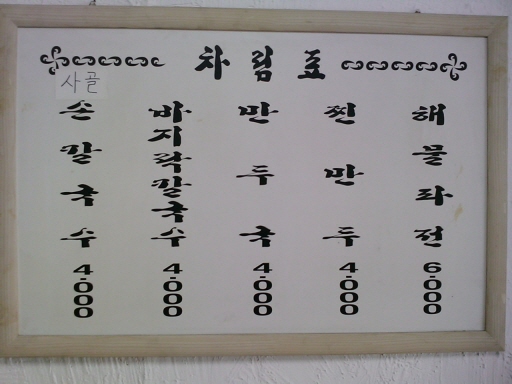 차림표
사골
손칼국수 4.000
바지락칼국수 4.000
만두국 4.000
찐만두 4.000
해물파전 6.000